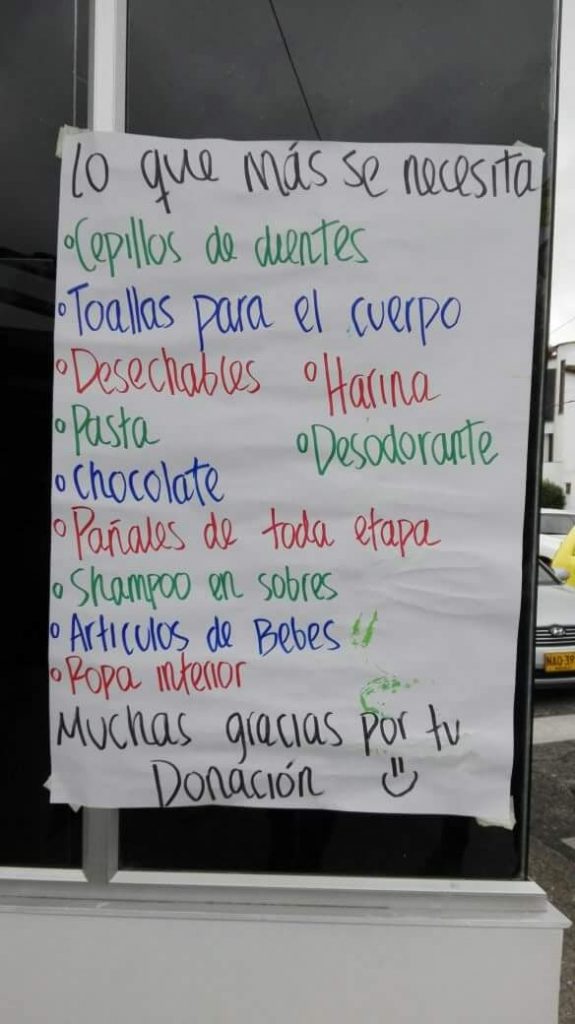 Lo que más se necesita
°Cepillos de dientes
°Toallas para el cuerpo
°Desechables °Harina
°Pasta °Desodorante
°Chocolate
°Pañales de toda etapa
°Shampoo en sobres
°Articulos de Bebes
°Ropa interior
Muchas gracias por tu
Donación